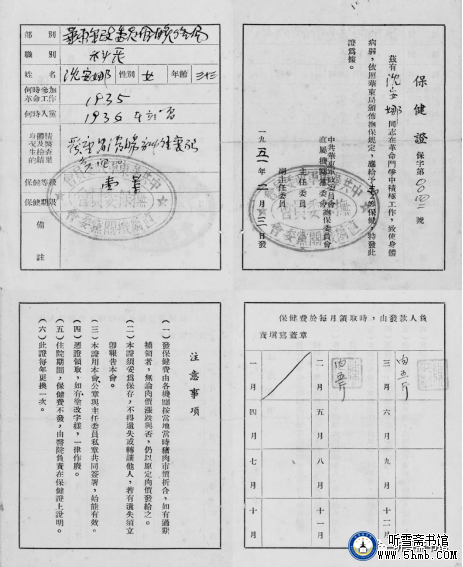 部別
職別 科長
姓名 沈安娜 性別 女 年齡
何時參加革命工作 1935
何時入黨 1936
身體情況及醫生檢查的結果
保健等級
保健期限
備註
保健證
保字第 號
茲有沈安娜同志在革命鬥爭中積極工作，致使身體
病弱，依照華東局頒佈撫保規定，應給予 等保健，特發此
證爲據。
中共華東軍政委員會撫保委員會
直屬機關黨委會
主任委員
副主任委員
一九五一年一月二日發
注意事項
（一）發保健費由各機關按當地當時猪肉市價折合，如有過期
補領者，無論肉價漲跌與否，仍以原定肉價發給之。
（二）本證須妥爲保存，不得遺失或轉讓他人，若有遺失須立
卽報告本會。
（三）本證用本會公章與主任委員私章共同簽署，始能有效。
（四）憑證領取，如有塗改字樣，一律作廢。
（五）住院期間，保健費不發，由醫院負責在保健證上說明。
（六）此證每年更換一次。
保健費於每月領取時，由發款人負
責填寫蓋章
一月
二月 肉五斤
三月 肉五斤
四月
五月
六月
七月
八月
九月
十月
十一月
十二月
听雪斋书馆
www.5hmb.com